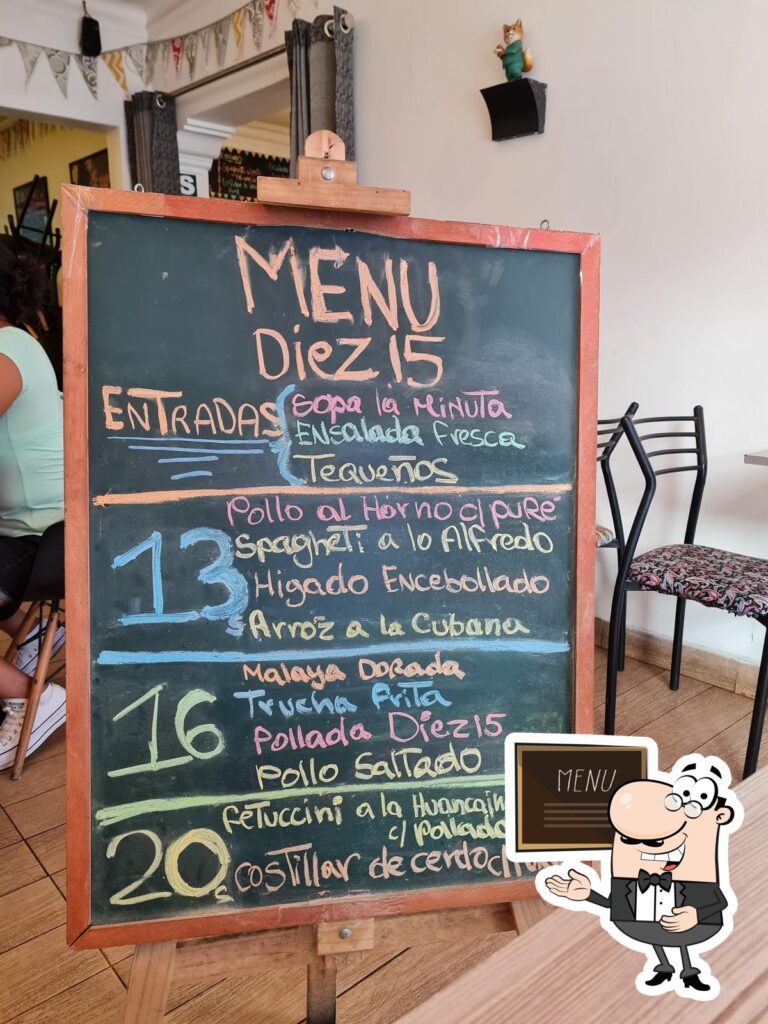 MENU
Diez 15
ENTRADAS
Sopa la Minuta
Ensalada Fresca
Tequeños
13s
Pollo al Horno c/ puré
Spagheti a lo Alfredo
Higado Encebollado
Arroz a la Cubana
16
Malaya Dorada
Trucha Frita
Pollada Diez 15
Pollo Saltado
20s
Fetuccini a la
c/
Costillar de cerdo
MENU
S